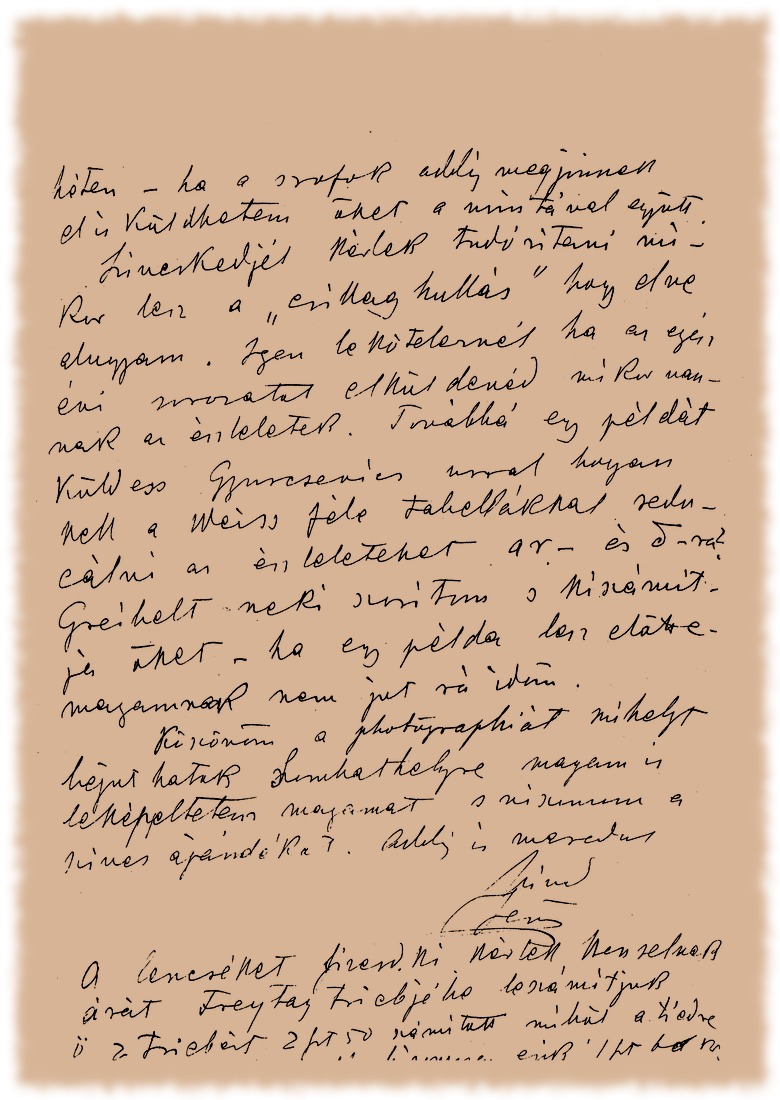 héten – ha a srofok addig megjönnek
el is küldhetem őket a mintával együtt.
Szíveskedjél kérlek tudósitani mi-
kor lesz a „csillag hullás" hogy el ne
alugyam. Igen leköteleznél ha az egész
évi sorozatot elküldenéd mikor van-
nak az észleletek. Továbbá egy példát
küldess Gyurcsevics urral hogyan
kell a Weiss féle tabellákkal redu-
cálni az észleleteket ar – és δ-ra?
Greihelt neki szoritom s kiszámit-
ja őket – ha egy példa lesz előtte –
magamnak nem jut rá időm.
Köszönöm a photographiát mihelyt
bejuthatok Szombathelyre magam is
leképeltetem magamat s viszonzom a
szives ajándékot. Addig is maradok
Jenő
A lencséket fizesd ki kérlek Henselnek
árát Freytag triebjéhe leszámitjuk
ő 2 triebért 2 frt 50 számitott mihát a tiedre
1 frt